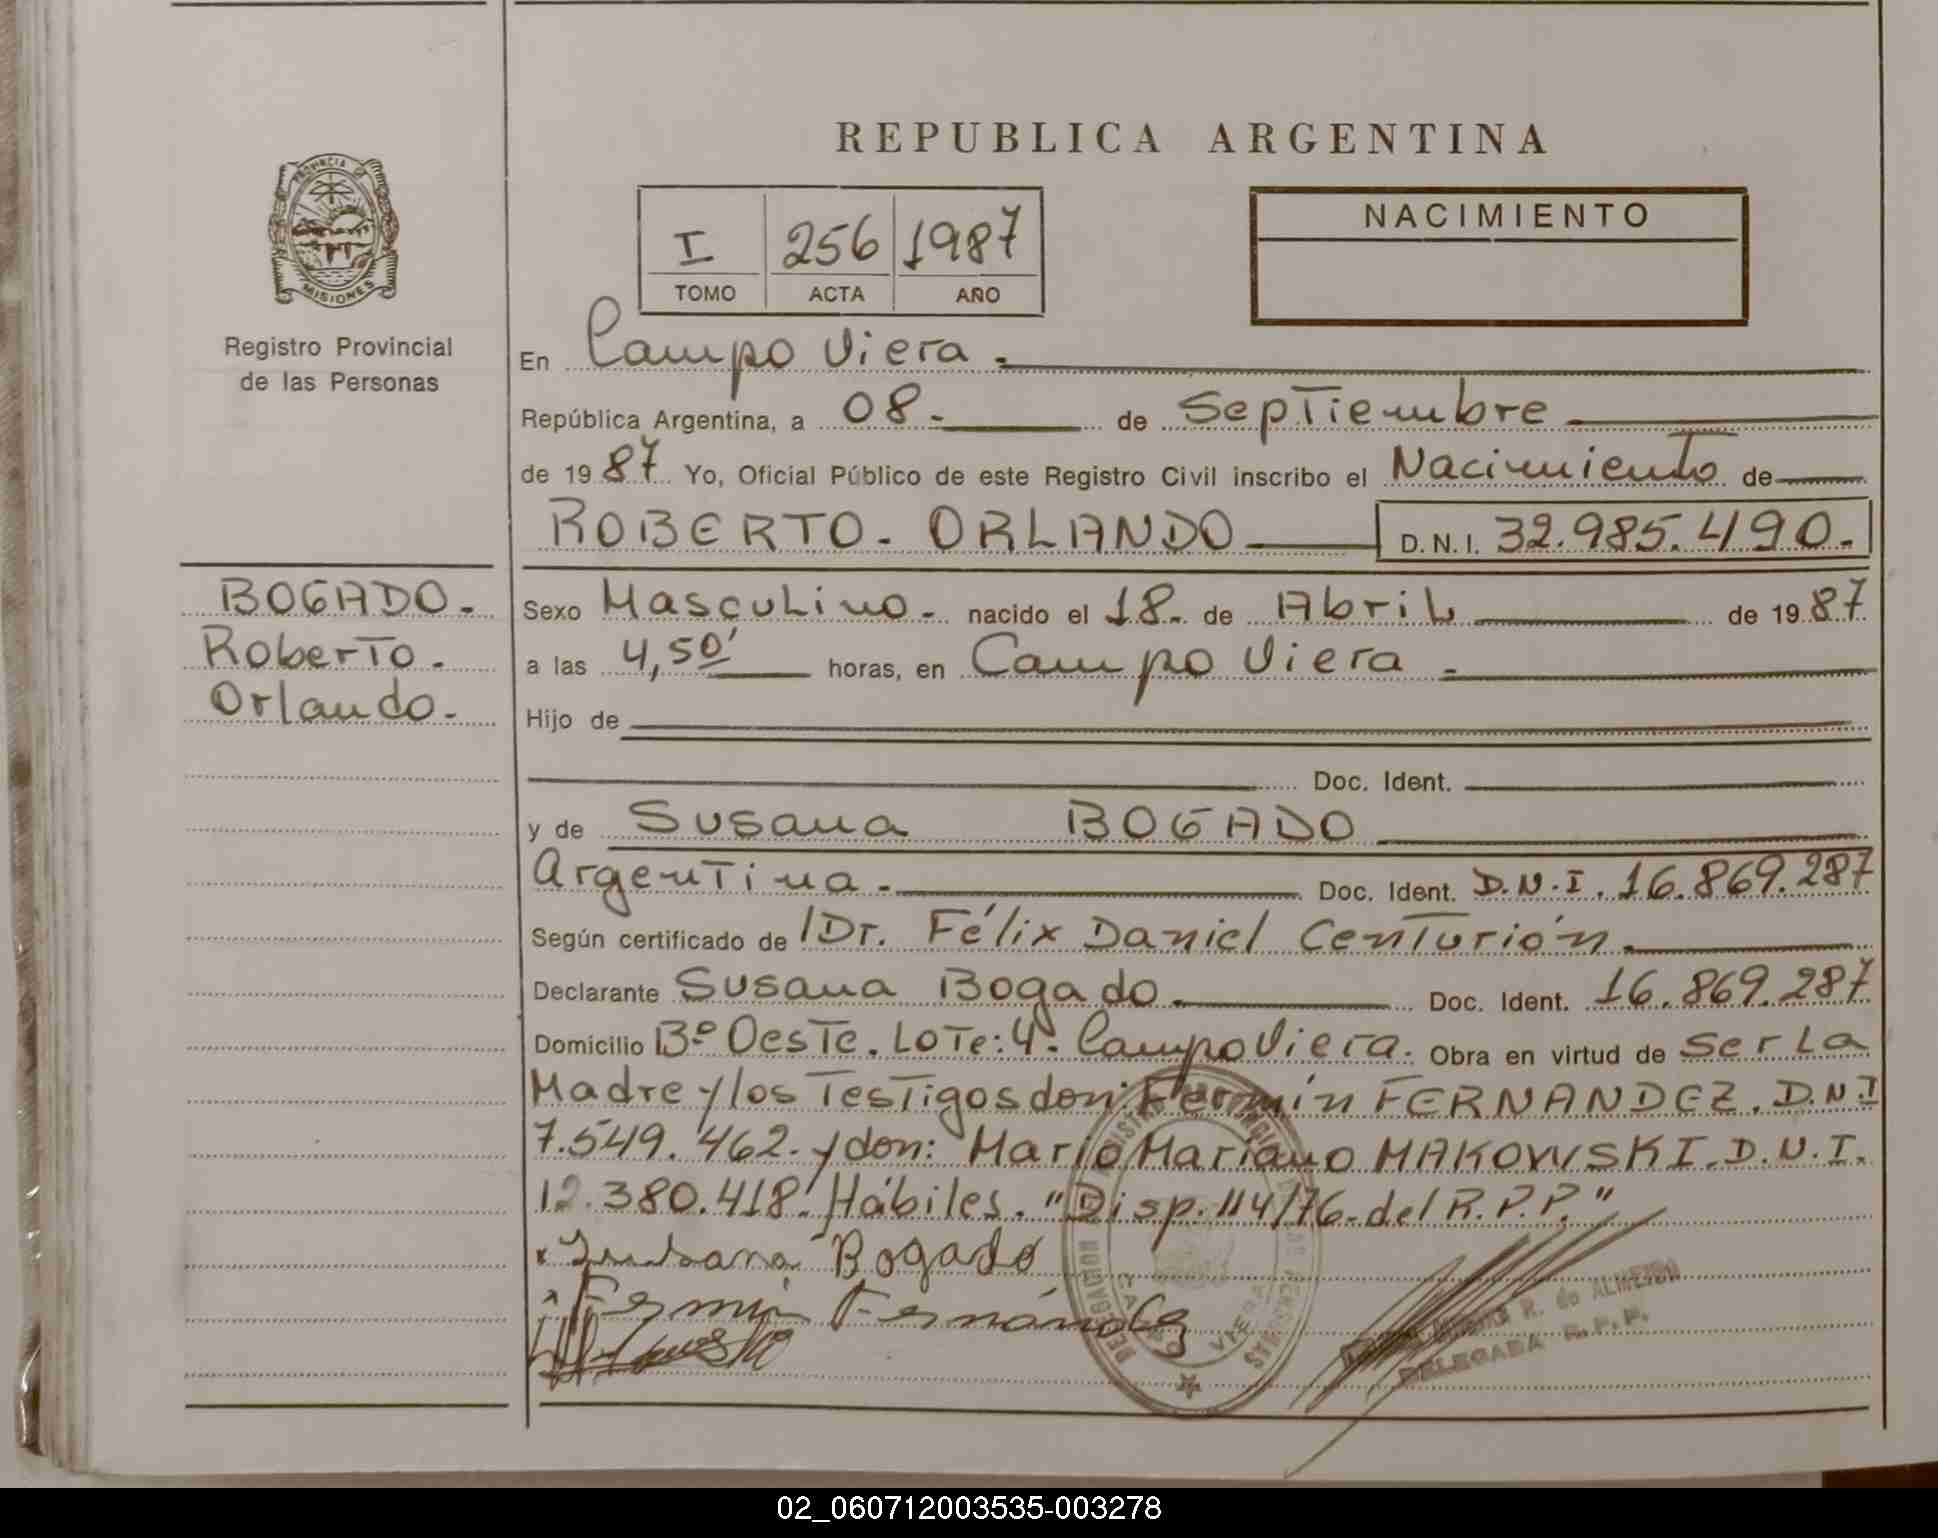 REPUBLICA ARGENTINA
PROVINCIA DE
MISIONES
Registro Provincial
de las Personas
I 256 1987
TOMO ACTA AÑO
NACIMIENTO
En Campo Viera.
República Argentina, a 08. de Septiembre
de 1987 Yo, Oficial Público de este Registro Civil inscribo el Nacimiento de
ROBERTO. ORLANDO D.N.I. 32.985.490.
BOGADO.
Roberto.
Orlando.
Sexo Masculino. nacido el 18. de Abril de 1987
a las 4,50' horas, en Campo Viera.
Hijo de
Doc. Ident.
y de Susana BOGADO
Argentina. Doc. Ident. D.N.I. 16.869.287
Según certificado de Dr. Félix Daniel Centurión.
Declarante Susana Bogado. Doc. Ident. 16.869.287
Domicilio Bº Oeste. Lote: 4. Campo Viera. Obra en virtud de ser La
Madre y los Testigos don: Fermín FERNANDEZ. D.N.I
7.549.462. y don: Mario Mariano MAKOWSKI. D.N.I.
12.380.418. Hábiles. "Disp. 114/76. del R.P.P."
Susana Bogado
Fermín Fernández
R. de ALMEIDA
DELEGADA R.P.P.
DELEGACION
CAMPO VIERA
02_060712003535-003278